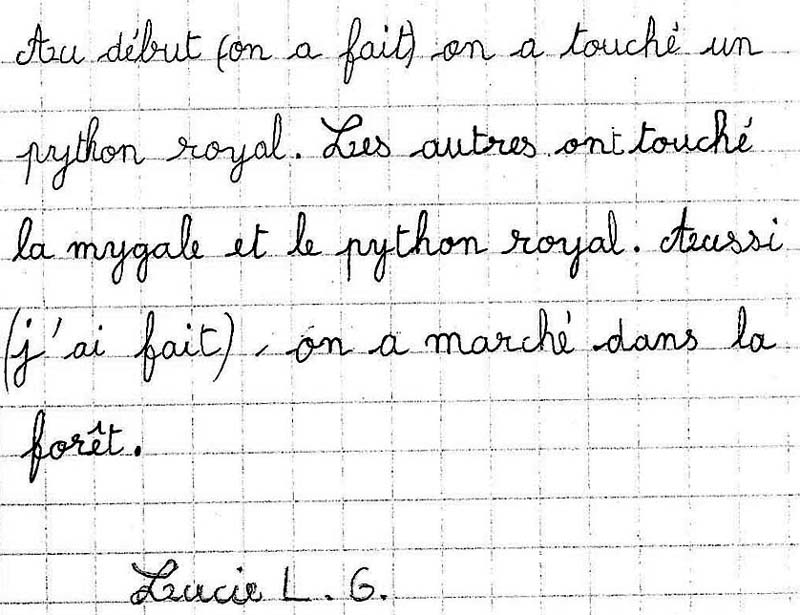 Au début (on a fait) on a touché un
python royal. Les autres ont touché
la mygale et le python royal. Aussi
(j'ai fait), on a marché dans la
forêt.
Lucie L. G.